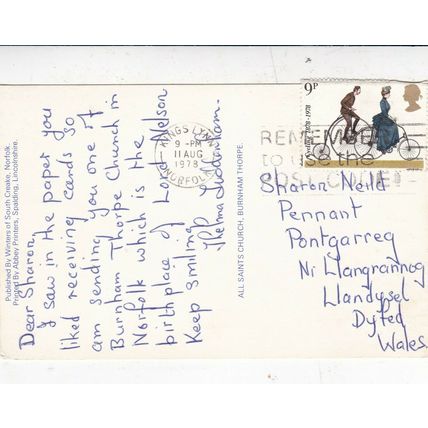 Dear Sharon,
I saw in the paper you
liked receiving cards so
am sending you one of
Burnham Thorpe Church in
Norfolk which is the
birthplace of Lord Nelson
Keep smiling
Thelma
ALL SAINTS CHURCH, BURNHAM THORPE.
Published By Winters of South Creake, Norfolk.
Printed By Abbey Printers, Spalding, Lincolnshire.
KINGS LYNN
9 -PM
11 AUG
1978
NORFOLK
REMEMBER
to use the
POST CODE
9P
Cycling 1878-1978
Sharon Neild
Pennant
Pontgarreg
Nr Llangrannog
Llandysel
Dyfed
Wales